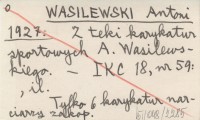 WASILEWSKI Antoni
1927: Z teki karykatur
sportowych A. Wasilews-
kiego. — IKC 18, nr 59:
, il.
Tylko 6 karykatur nar-
ciarzy zakop.